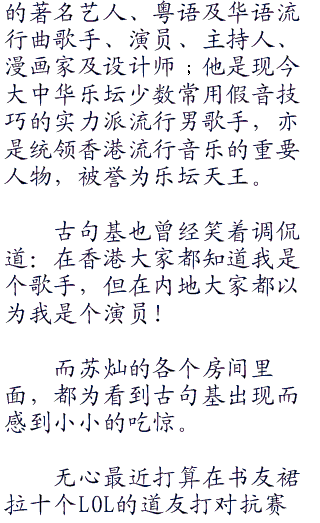 的著名艺人、粤语及华语流
行曲歌手、演员、主持人、
漫画家及设计师；他是现今
大中华乐坛少数常用假音技
巧的实力派流行男歌手，亦
是统领香港流行音乐的重要
人物，被誉为乐坛天王。
古句基也曾经笑着调侃
道：在香港大家都知道我是
个歌手，但在内地大家都以
为我是个演员！
而苏灿的各个房间里
面，都为看到古句基出现而
感到小小的吃惊。
无心最近打算在书友裙
拉十个LOL的道友打对抗赛